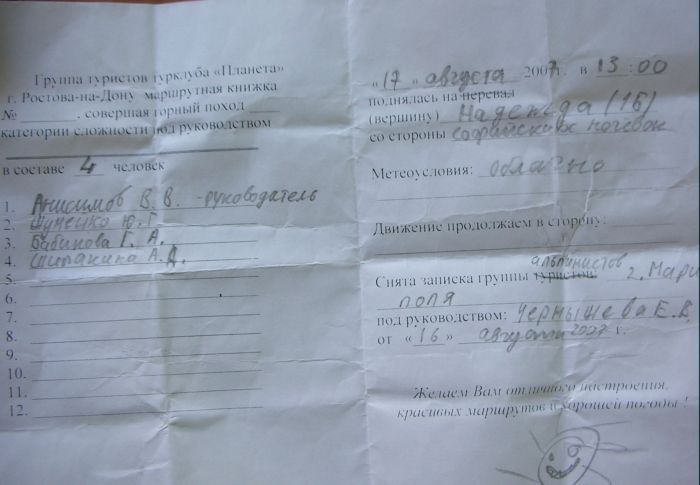 Группа туристов турклуба «Планета»
г. Ростова-на-Дону маршрутная книжка
№ , совершая горный поход
категории сложности под руководством
в составе 4 человек
1. Анисимов В. В. - руководитель
2. Ю. Г
3. Бабикова Г. А.
4. Шипакина А. Д.
5.
6.
7.
8.
9.
10.
11.
12.
«17» августа 2007г. в 13:00
поднялась на перевал
(вершину) Надежда (1Б)
со стороны Софийских ночевок
Метеоусловия: Облачно
Движение продолжаем в сторону:
альпинистов
Снята записка группы туристов: г. Мари
поля
под руководством: Чернышева Е. В
от «16» августа 2007 г.
Желаем Вам отличного настроения,
красивых маршрутов и хорошей погоды !